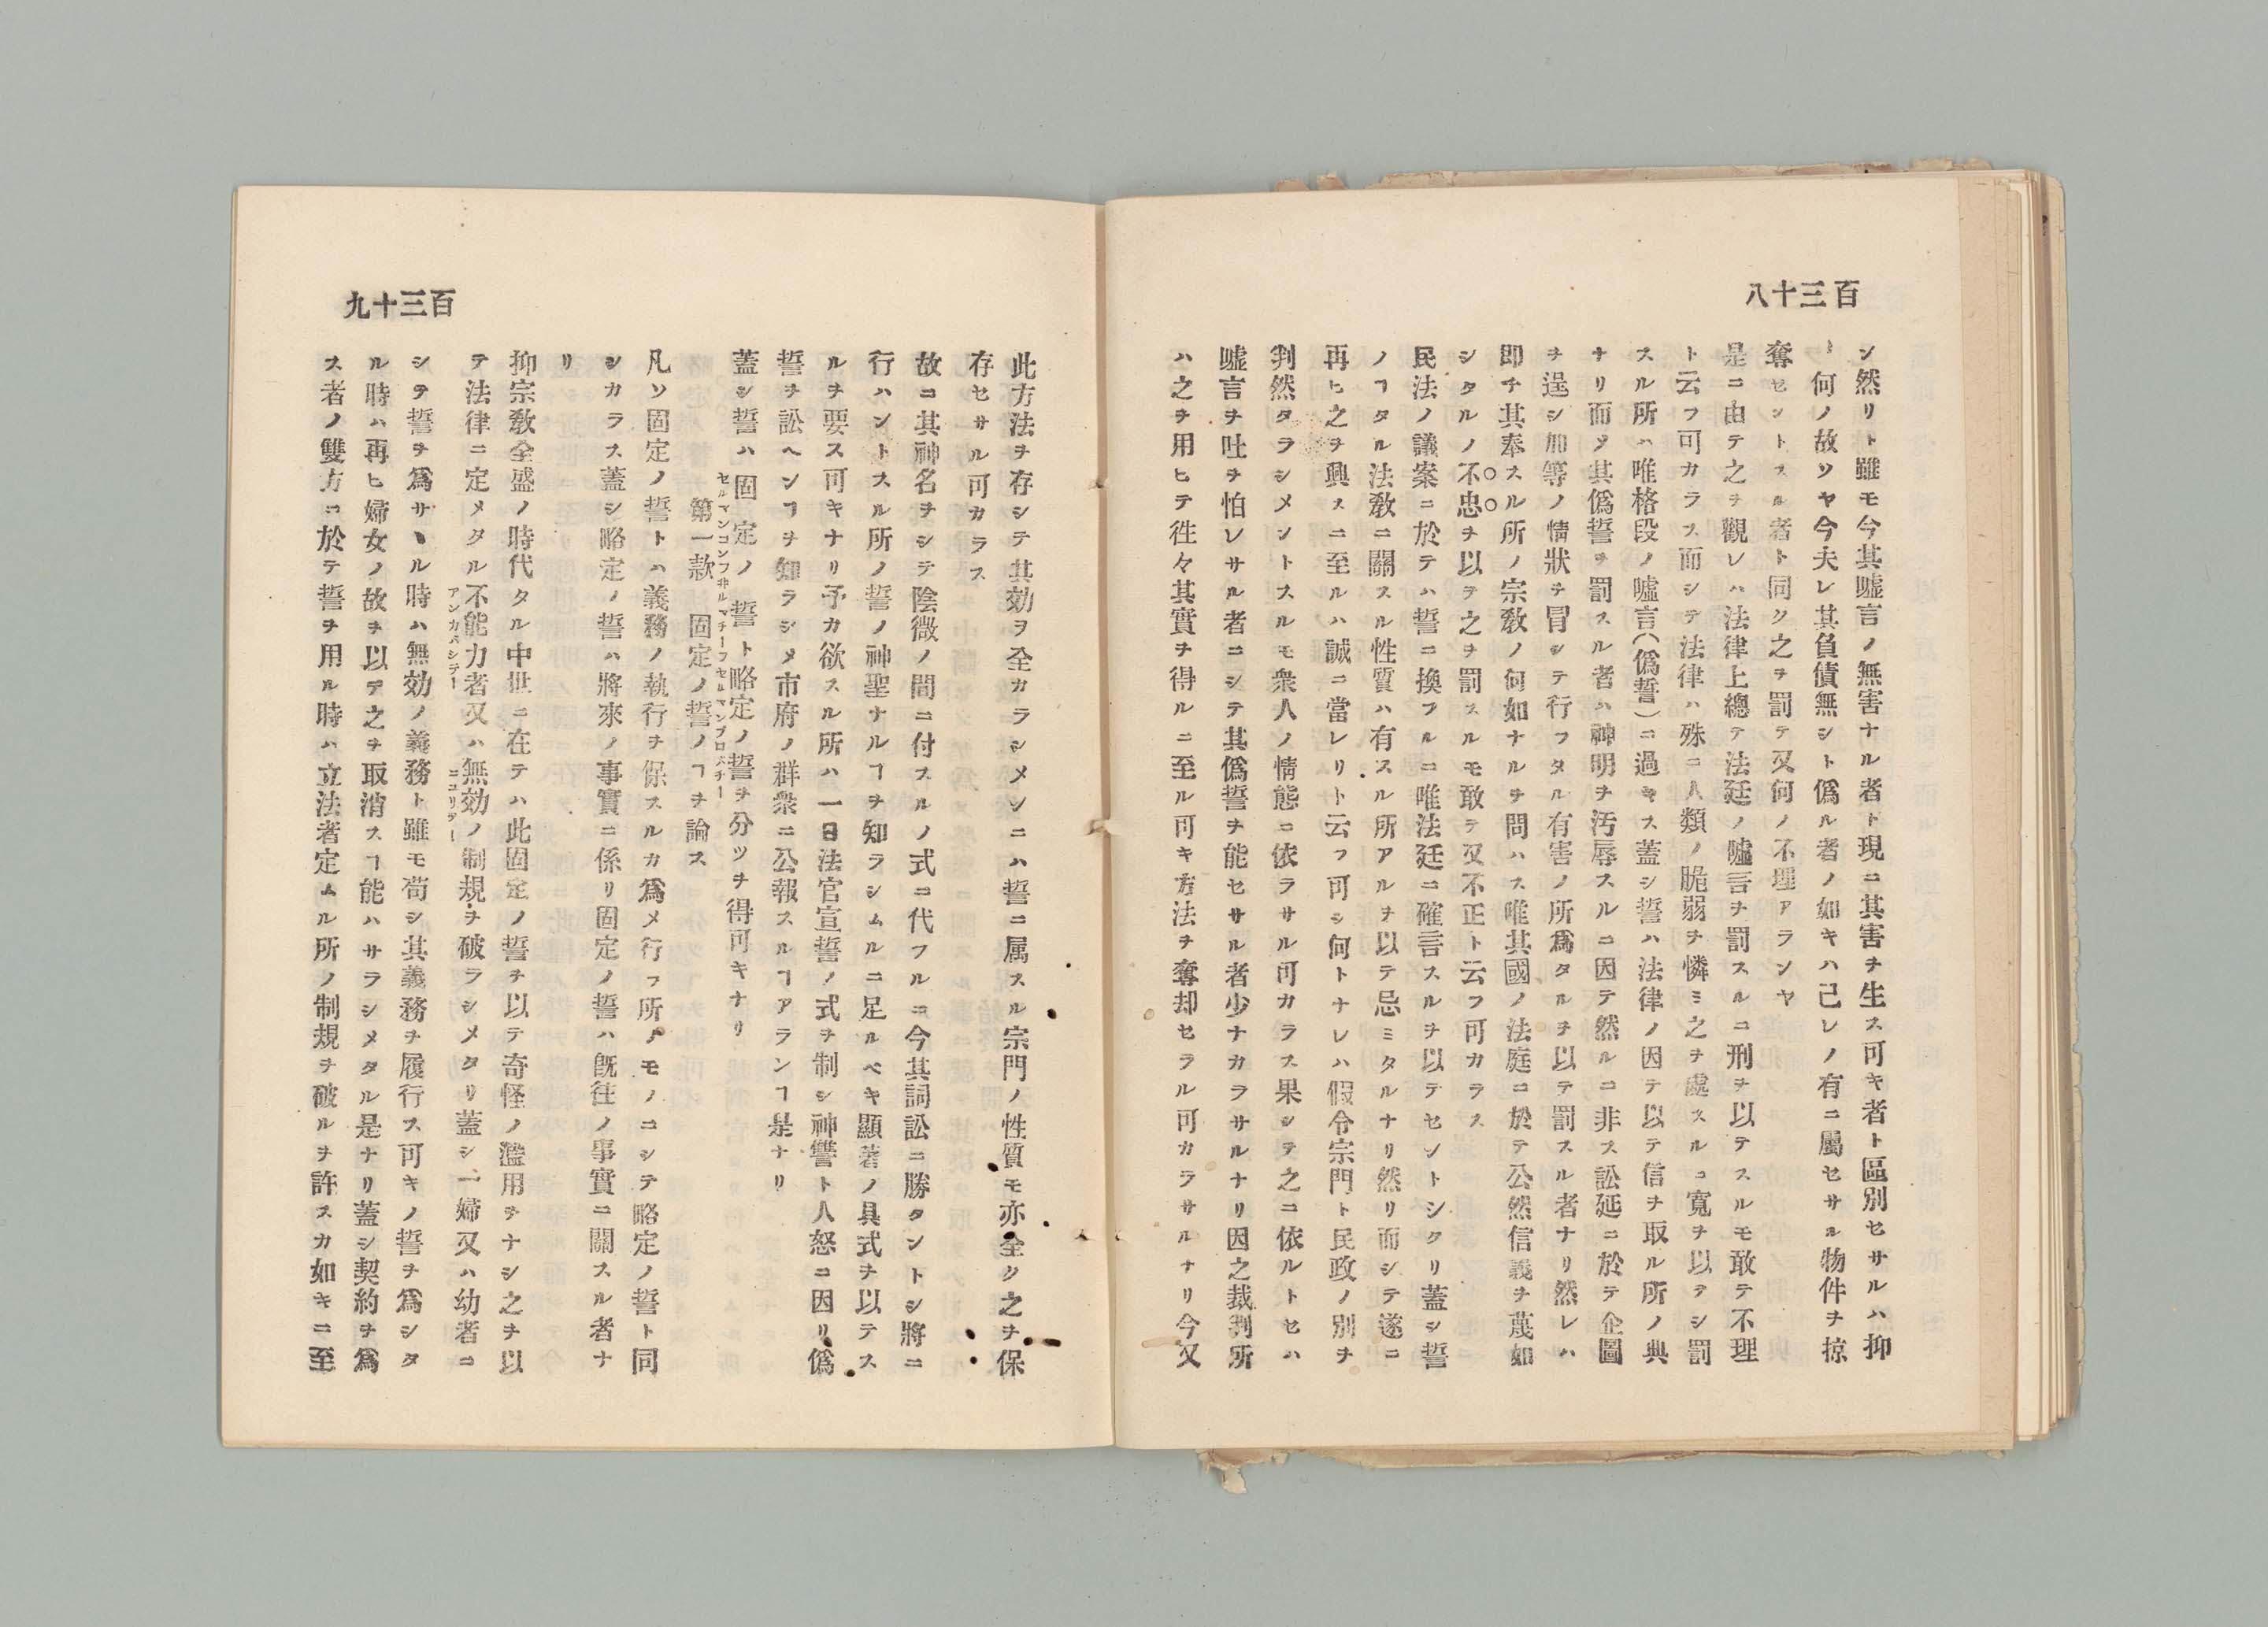 百三十八
ン然リト雖モ今其嘘言ノ無害ナル者ト現ニ其害ヲ生ス可キ者ト區別セサルハ抑
〻何ノ故ソヤ今夫レ其負債無シト僞ル者ノ如キハ己レノ有ニ屬セサル物件ヲ掠
奪セントスル者ト同ク之ヲ罰テ又何ノ不理アランヤ
是ニ由テ之ヲ觀レハ法律上總テ法廷ノ嘘言ヲ罰スルニ刑ヲ以テスルモ敢テ不理
ト云フ可カラス而シテ法律ハ殊ニ人類ノ脆弱ヲ憐ミ之ヲ處スルニ寬ヲ以テシ罰
スル所ハ唯格段ノ嘘言(僞誓)ニ過キス蓋シ誓ハ法律ノ因テ以テ信ヲ取ル所ノ典
ナリ而メ其僞誓ヲ罰スル者ハ神明ヲ汚辱スルニ因テ然ルニ非ス訟廷ニ於テ企圖
ヲ逞シ加等ノ情狀ヲ冒シテ行フタル有害ノ所爲タルヲ以テ罰スル者ナリ然レハ
即チ其奉スル所ノ宗教ノ何如ナルヲ問ハス唯其國ノ法庭ニ於テ公然信義ヲ蔑如
シタルノ不忠ヲ以テ之ヲ罰スルモ敢テ又不正ト云フ可カラス
民法ノ議案ニ於テハ誓ニ換フルニ唯法廷ニ確言スルヲ以テセントシタリ蓋シ誓
ノヿタル法教ニ關スル性質ハ有スル所アルヲ以テ忌ミタルナリ然リ而シテ遂ニ
再ヒ之ヲ興スニ至ルハ誠ニ當レリト云フ可シ何トナレハ假令宗門ト民政ノ別ヲ
判然タラシメントスルモ衆人ノ情態ニ依ラサル可カラス果シテ之ニ依ルトセハ
嘘言ヲ吐ヲ怕レサル者ニシテ其僞誓ヲ能セサル者少ナカラサルナリ因之裁判所
ハ之ヲ用ヒテ徃々其實ヲ得ルニ至ル可キ方法ヲ奪却セラル可カラサルナリ今又
百三十九
此方法ヲ存シテ其効ヲ全カラシメンニハ誓ニ属スル宗門ノ性質モ亦全ク之ヲ保
存セサル可カラス
故ニ其神名ヲシテ陰微ノ間ニ付スルノ式ニ代フルニ今其詞訟ニ勝タントシ將ニ
行ハントスル所ノ誓ノ神聖ナルヿヲ知ラシムルニ足ルベキ顯著ノ具式ヲ以テス
ルヲ要ス可キナリ予カ欲スル所ハ一日法官宣誓ノ式ヲ制シ神讐ト人怒ニ因リ僞
誓ヲ訟ヘンヿヲ知ラシメ市府ノ群衆ニ公報スルヿアランヿ是ナリ
蓋シ誓ハ固定ノ誓ト略定ノ誓ヲ分ツヲ得可キナリ
第一款　固定ノ誓ノヿヲ論ス
凡ソ固定ノ誓トハ義務ノ執行ヲ保スルカ爲メ行フ所ノモノニシテ略定ノ誓ト同
シカラス蓋シ略定ノ誓ハ將來ノ事實ニ係リ固定ノ誓ハ既往ノ事實ニ關スル者ナ
リ
抑宗教全盛ノ時代タル中世ニ在テハ此固定ノ誓ヲ以テ奇怪ノ濫用ヲナシ之ヲ以
テ法律ニ定メタル不能力者又ハ無効ノ制規ヲ破ラシメタリ蓋シ一婦又ハ幼者ニ
シテ誓ヲ爲サヽル時ハ無効ノ義務ト雖モ苟シ其義務ヲ履行ス可キノ誓ヲ爲シタ
ル時ハ再ヒ婦女ノ故ヲ以テ之ヲ取消スヿ能ハサラシメタル是ナリ蓋シ契約ヲ爲
ス者ノ雙方ニ於テ誓ヲ用ル時ハ立法者定ムル所ノ制規ヲ破ルヲ許スカ如キニ至